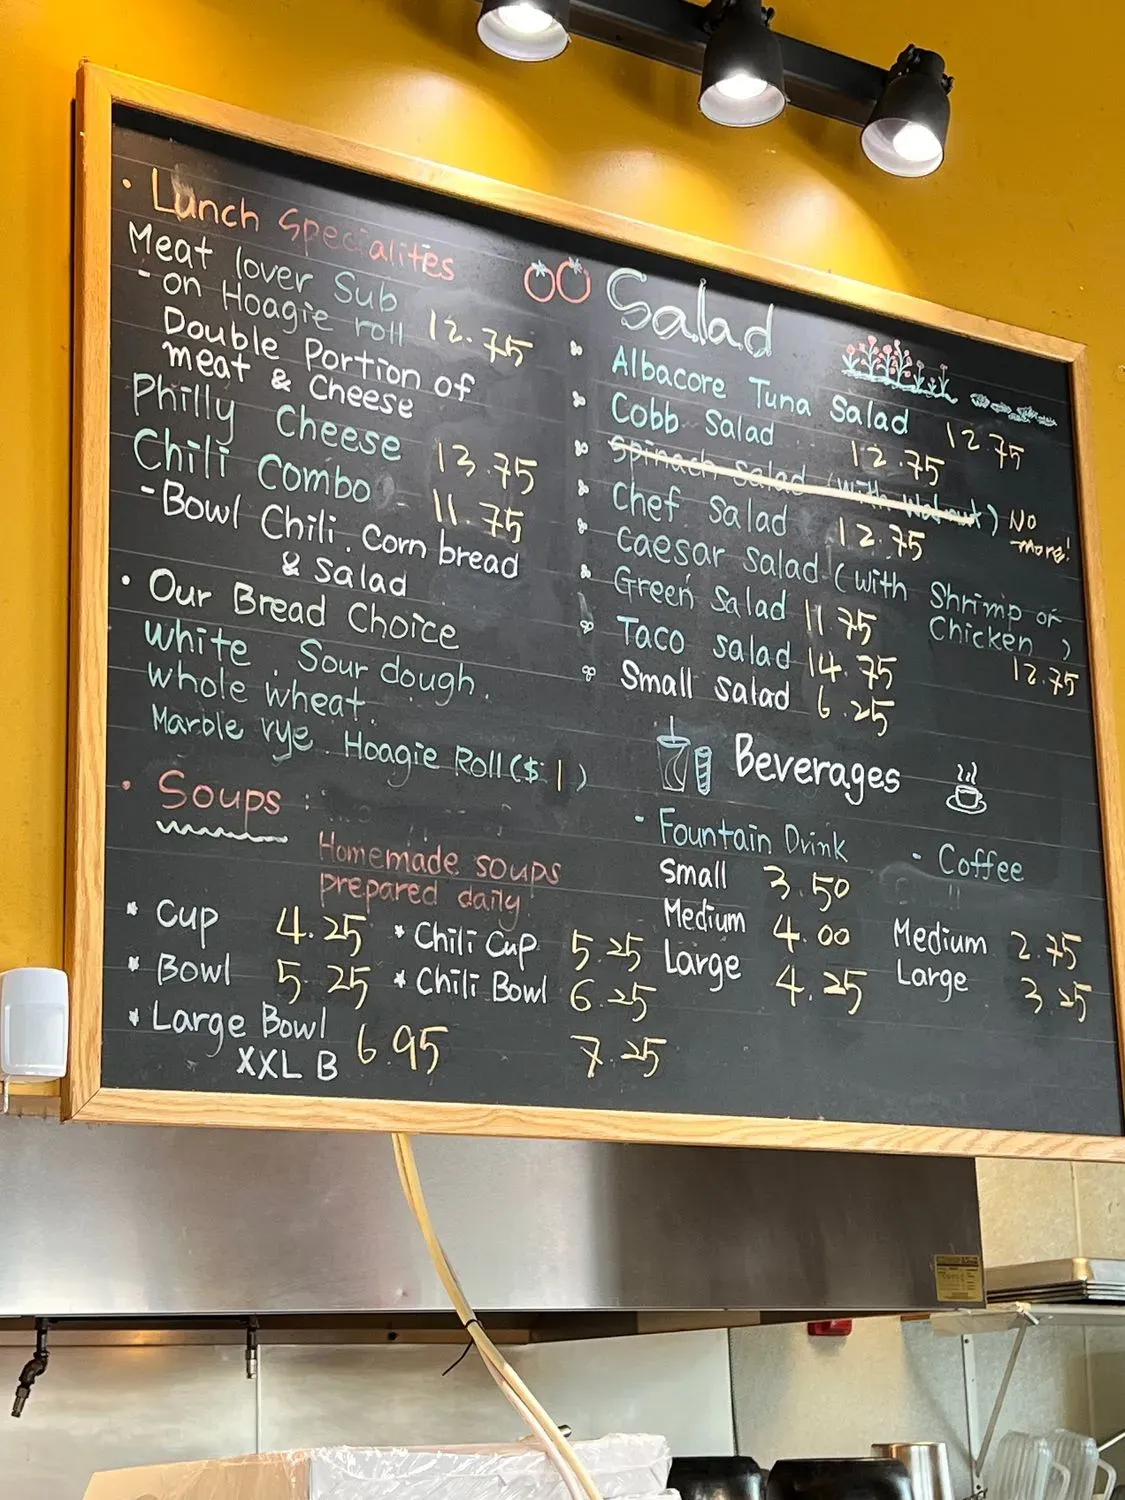 • Lunch Specialités
Meat lover Sub
- on Hoagie roll 12.75
Double Portion of
meat & Cheese
Philly Cheese 13.75
Chili Combo 11.75
- Bowl Chili. Corn bread
& Salad
• Our Bread Choice
White. Sour dough.
whole wheat.
Marble rye. Hoagie Roll ($1)
• Soups :
Homemade soups
prepared daily
* Cup 4.25
* Bowl 5.25
* Large Bowl 6.95
XXL B
* Chili Cup 5.25
* Chili Bowl 6.25
7.25
Salad
Albacore Tuna Salad 12.75
Cobb Salad 12.75
Spinach Salad (with Walnut) No
more!
Chef Salad 12.75
Caesar Salad (with Shrimp or
Chicken)
12.75
Green Salad 11.75
Taco salad 14.75
Small Salad 6.25
Beverages
- Fountain Drink
Small 3.50
Medium 4.00
Large 4.25
- Coffee
Medium 2.75
Large 3.25